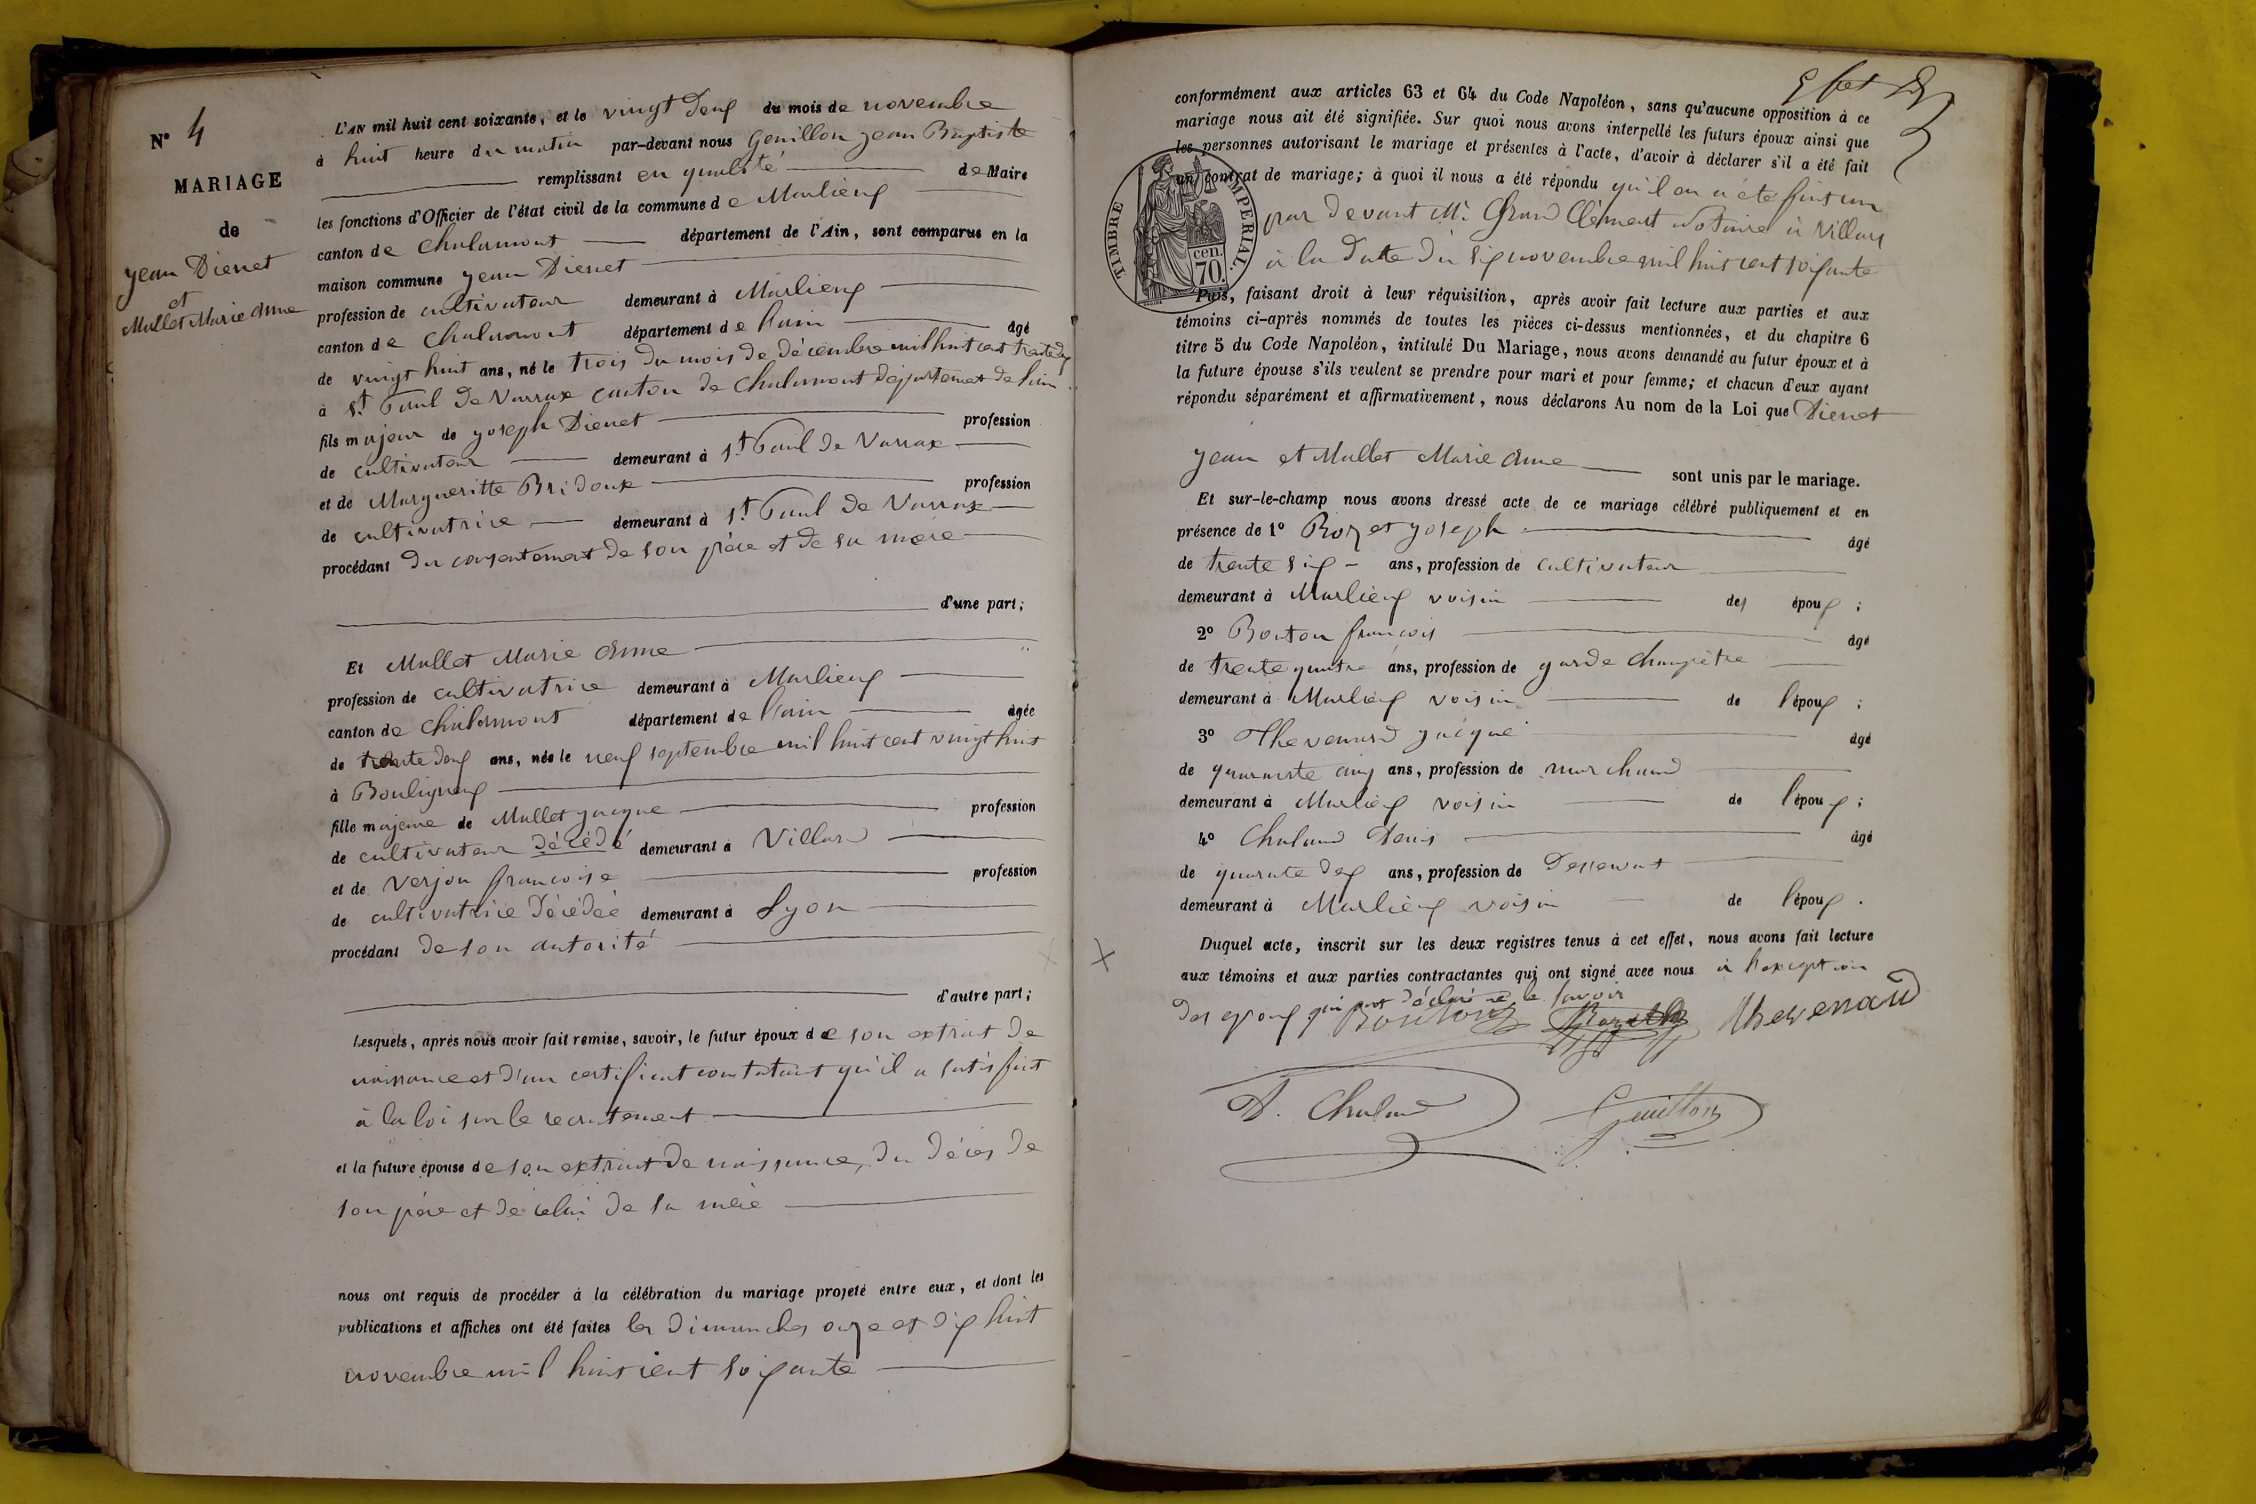 N° 4
MARIAGE
de
jean Dienet
et
Mallet Marie Anne
L'AN mil huit cent soixante, et le vingt deux du mois de novembre
à huit heure du matin par-devant nous Genillon jean Baptiste
remplissant en qualité de Maire
les fonctions d'Officier de l'état civil de la commune de Marlieux
canton de Chalamont département de l'Ain, sont comparus en la
maison commune jean Dienet
profession de cultivateur demeurant à Marlieux
canton de Chalamont département de l'ain âgé
de vingt huit ans, né le trois du mois de décembre mil huit cent trente
à St Paul de Varrax canton de Chalamont département de l'ain
fils majeur de joseph Dienet profession
de cultivateur demeurant à St Paul de Varrax
et de Margueritte Bridoux profession
de cultivatrice demeurant à St Paul de Varrax
procédant du consentement de son père et de sa mère
d'une part;
Et Mallet Marie Anne
profession de cultivatrice demeurant à Marlieux
canton de Chalamont département de l'ain âgée
de trente deux ans, née le neuf septembre mil huit cent vingt huit
à Bouligneux
fille majeure de Mallet jacque profession
de cultivateur décédé demeurant à Villars
et de Verjon francoise profession
de cultivatrice décédée demeurant à Lyon
procédant de son autorité
d'autre part;
Lesquels, après nous avoir fait remise, savoir, le futur époux de son extrait de
naissance et d'un certificat constatant qu'il a satisfait
à la loi sur le recrutement
et la future épouse de son extrait de naissance, du décès de
son père et de celui de sa mère
nous ont requis de procéder à la célébration du mariage projeté entre eux, et dont les
publications et affiches ont été faites les dimanches onze et dix huit
novembre mil huit cent soixante
conformément aux articles 63 et 64 du Code Napoléon, sans qu'aucune opposition à ce
mariage nous ait été signifiée. Sur quoi nous avons interpellé les futurs époux ainsi que
les personnes autorisant le mariage et présentes à l'acte, d'avoir à déclarer s'il a été fait
un contrat de mariage; à quoi il nous a été répondu qu'il en a été fait un
par devant Mr. Grand Clément Notaire à Villars
à la date du six novembre mil huit cent soixante
TIMBRE IMPERIAL.
cen.
70
Puis, faisant droit à leur réquisition, après avoir fait lecture aux parties et aux
témoins ci-après nommés de toutes les pièces ci-dessus mentionnées, et du chapitre 6
titre 5 du Code Napoléon, intitulé Du Mariage, nous avons demandé au futur époux et à
la future épouse s'ils veulent se prendre pour mari et pour femme; et chacun d'eux ayant
répondu séparément et affirmativement, nous déclarons Au nom de la Loi que Dienet
jean et Mallet Marie Anne sont unis par le mariage.
Et sur-le-champ nous avons dressé acte de ce mariage célébré publiquement et en
présence de 1° Bozet joseph âgé
de trente six ans, profession de cultivateur
demeurant à Marlieux voisin des époux;
2° Bouton francois âgé
de trente quatre ans, profession de garde champètre
demeurant à Marlieux voisin de l'époux;
3° Thevenard jacque âgé
de quarante cinq ans, profession de marchand
demeurant à Marlieux voisin de l'époux;
4° Chaland Denis âgé
de quarante dex ans, profession de
demeurant à Marlieux voisin de l'époux.
Duquel acte, inscrit sur les deux registres tenus à cet effet, nous avons fait lecture
aux témoins et aux parties contractantes qui ont signé avec nous à l'exception
des epoux qui ont déclaré ne le savoir
Bouton Bozet Thevenard
D. Chaland Genillon